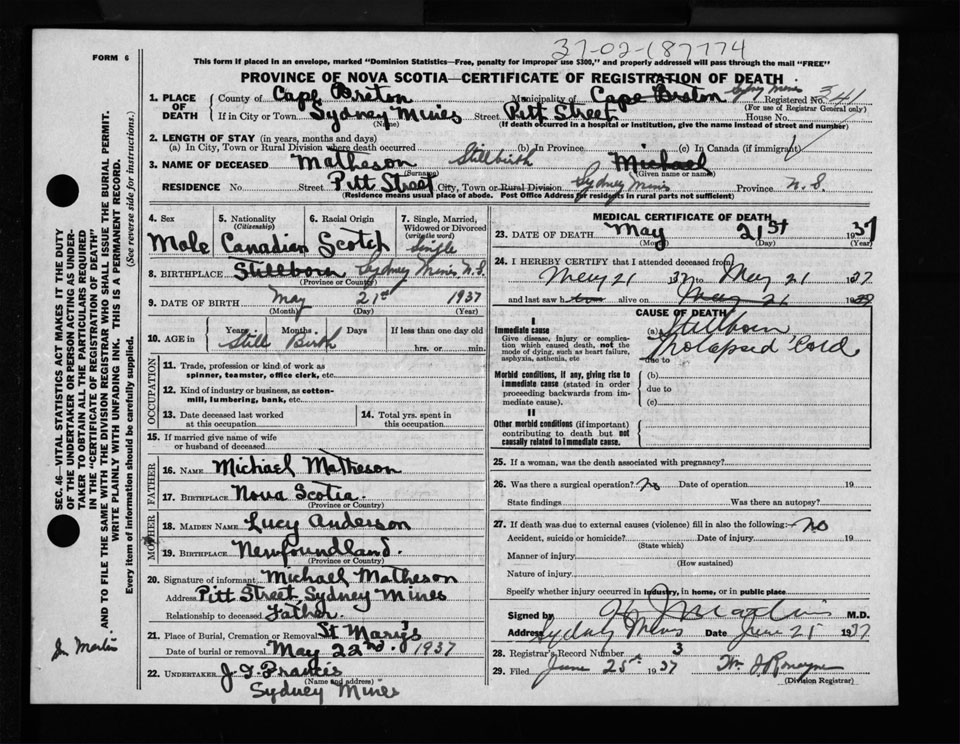 37-02-187774
FORM 6
This form if placed in an envelope, marked "Dominion Statistics—Free, penalty for improper use $300," and properly addressed will pass through the mail "FREE"
PROVINCE OF NOVA SCOTIA—CERTIFICATE OF REGISTRATION OF DEATH
1. PLACE OF DEATH
County of Cape Breton Municipality of Cape Breton Sydney Mines Registered No. 341
(For use of Registrar General only)
If in City or Town Sydney Mines Street Pitt Street House No.
(Name) (If death occurred in a hospital or institution, give the name instead of street and number)
2. LENGTH OF STAY (in years, months and days)
(a) In City, Town or Rural Division where death occurred (b) In Province (c) In Canada (if immigrant)
3. NAME OF DECEASED Matheson Stillbirth Michael
(Surname) (Given name or names)
RESIDENCE No. Street Pitt Street City, Town or Rural Division Sydney Mines Province N.S.
(Residence means usual place of abode. Post Office Address for residents in rural parts not sufficient)
4. Sex 5. Nationality (Citizenship) 6. Racial Origin 7. Single, Married, Widowed or Divorced (write the word)
Male Canadian Scotch Single
8. BIRTHPLACE Stillborn Sydney Mines N.S.
(Province or County)
9. DATE OF BIRTH May 21st 1937
(Month) (Day) (Year)
10. AGE in Years Months Days If less than one day old
Still Birth hrs. or min.
OCCUPATION
11. Trade, profession or kind of work as
spinner, teamster, office clerk, etc.
12. Kind of industry or business, as cotton-
mill, lumbering, bank, etc.
13. Date deceased last worked
at this occupation
14. Total yrs. spent in
this occupation
15. If married give name of wife
or husband of deceased
FATHER
16. NAME Michael Matheson
17. BIRTHPLACE Nova Scotia.
(Province or Country)
MOTHER
18. MAIDEN NAME Lucy Anderson
19. BIRTHPLACE Newfoundland.
(Province or Country)
20. Signature of informant Michael Matheson
Address Pitt Street, Sydney Mines
Relationship to deceased Father.
21. Place of Burial, Cremation or Removal St Mary's
Date of burial or removal May 22nd 1937
22. UNDERTAKER J. D Francis
(Name and address)
Sydney Mines
MEDICAL CERTIFICATE OF DEATH
23. DATE OF DEATH May 21st 1937
(Month) (Day) (Year)
24. I HEREBY CERTIFY that I attended deceased from
May 21 1937 to May 21 1937
and last saw h alive on May 21 19
CAUSE OF DEATH
I
Immediate cause
Give disease, injury or complica-
tion which caused death, not the
mode of dying, such as heart failure,
asphyxia, asthenia, etc
(a) Stillborn
Prolapsed Cord
due to
Morbid conditions, if any, giving rise to
immediate cause (stated in order
proceeding backwards from im-
mediate cause).
(b)
due to
(c)
II
Other morbid conditions (if important)
contributing to death but not
causally related to immediate cause.
25. If a woman, was the death associated with pregnancy?
26. Was there a surgical operation? No Date of operation 19
State findings Was there an autopsy?
27. If death was due to external causes (violence) fill in also the following: No
Accident, suicide or homicide? Date of injury 19
(State which)
Manner of injury
(How sustained)
Nature of injury
Specify whether injury occurred in industry, in home, or in public place
Signed by M.D.
Address Sydney Mines Date June 25 1937
28. Registrar's Record Number 3
29. Filed June 25th 1937 Wm
(Division Registrar)
SEC. 46—VITAL STATISTICS ACT MAKES IT THE DUTY
OF THE UNDERTAKER OR PERSON ACTING AS UNDER-
TAKER TO OBTAIN ALL THE PARTICULARS REQUIRED
IN THE "CERTIFICATE OF REGISTRATION OF DEATH"
AND TO FILE THE SAME WITH THE DIVISION REGISTRAR WHO SHALL ISSUE THE BURIAL PERMIT.
WRITE PLAINLY WITH UNFADING INK. THIS IS A PERMANENT RECORD.
Every item of information should be carefully supplied. (See reverse side for instructions.)